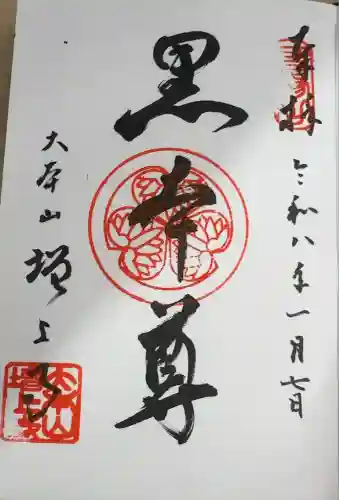 奉拝
令和八年一月七日
黒本尊
大本山 増上寺
大本山増上寺